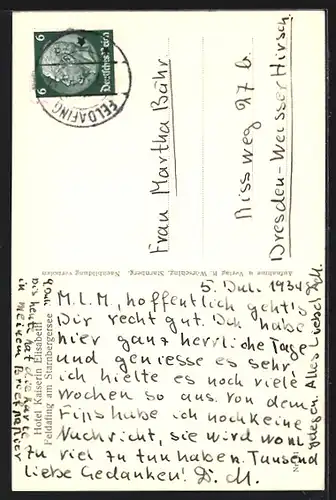 6 6
Deutsches Reich
FELDAFING
Frau Martha Bähr
Rissweg 97 b.
Dresden-Weisser Hirsch.
Aufnahme u. Verlag R. Wörsching, Starnberg. Nachbildung verboten
Hotel Kaiserin Elisabeth
Feldafing am Starnbergersee
5. Juli 1934
M.L.M, hoffentlich geht's
Dir recht gut. Ich habe
hier ganz herrliche Tage
und geniesse es sehr,
ich hielte es noch viele
Wochen so aus. Von dem
Fips habe ich noch keine
Nachricht, sie wird wohl
zu viel zu tun haben. Tausend
liebe Gedanken! D. M.
bis heute
in meinen
Alles Liebe